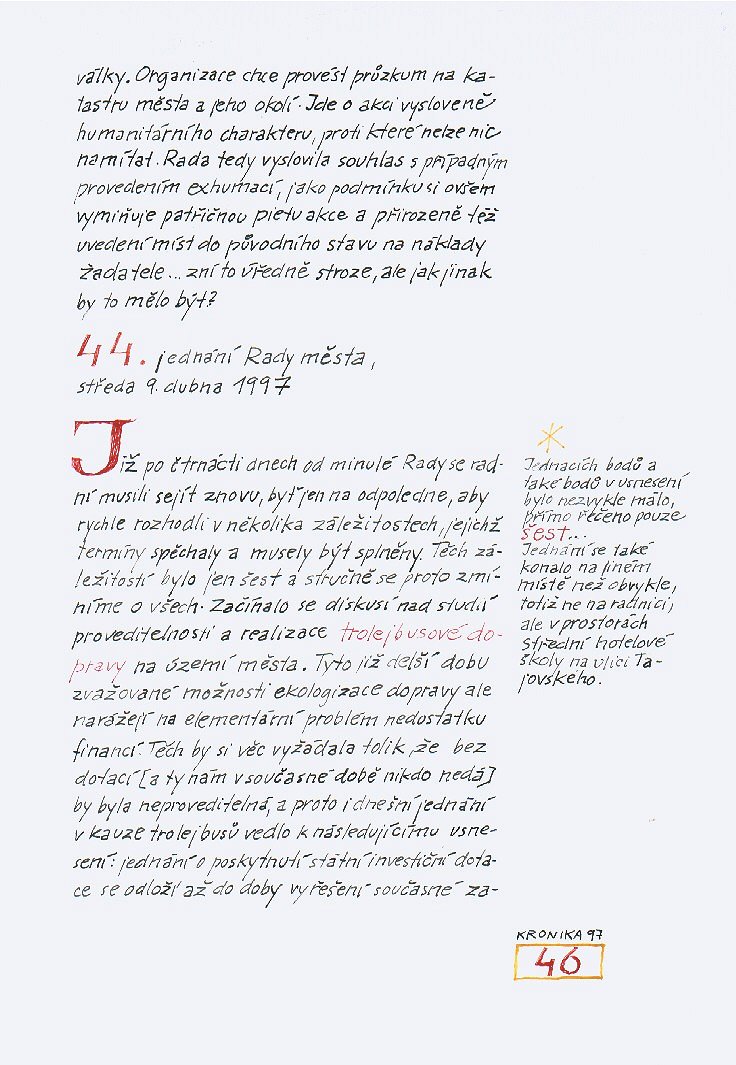 války. Organizace chce provést průzkum na ka-
tastru města a jeho okolí. Jde o akci vysloveně
humanitárního charakteru, proti které nelze nic
namítat. Rada tedy vyslovila souhlas s případným
provedením exhumací, jako podmínku si ovšem
vymiňuje patřičnou pietu akce a přirozeně též
uvedení míst do původního stavu na náklady
žadatele... zní to úředně stroze, ale jak jinak
by to mělo být?
44. jednání Rady města,
středa 9. dubna 1997
Již po čtrnácti dnech od minulé Rady se rad-
ní musili sejít znovu, byť jen na odpoledne, aby
rychle rozhodli v několika záležitostech, jejichž
termíny spěchaly a musely být splněny. Těch zá-
ležitostí bylo jen šest a stručně se proto zmí-
níme o všech. Začínalo se diskusí nad studií
proveditelnosti a realizace trolejbusové do-
pravy na území města. Tyto již delší dobu
zvažované možnosti ekologizace dopravy ale
narážejí na elementární problém nedostatku
financí. Těch by si věc vyžádala tolik, že bez
dotací [a ty nám v současné době nikdo nedá]
by byla neproveditelná, a proto i dnešní jednání
v kauze trolejbusů vedlo k následujícímu usne-
sení: jednání o poskytnutí státní investiční dota-
ce se odloží až do doby vyřešení současné za-
Jednacích bodů a
také bodů v usnesení
bylo nezvykle málo,
přímo řečeno pouze
šest...
Jednání se také
konalo na jiném
místě než obvykle,
totiž ne na radnici,
ale v prostorách
Střední hotelové
školy na ulici Ta-
jovského.
KRONIKA 97
46